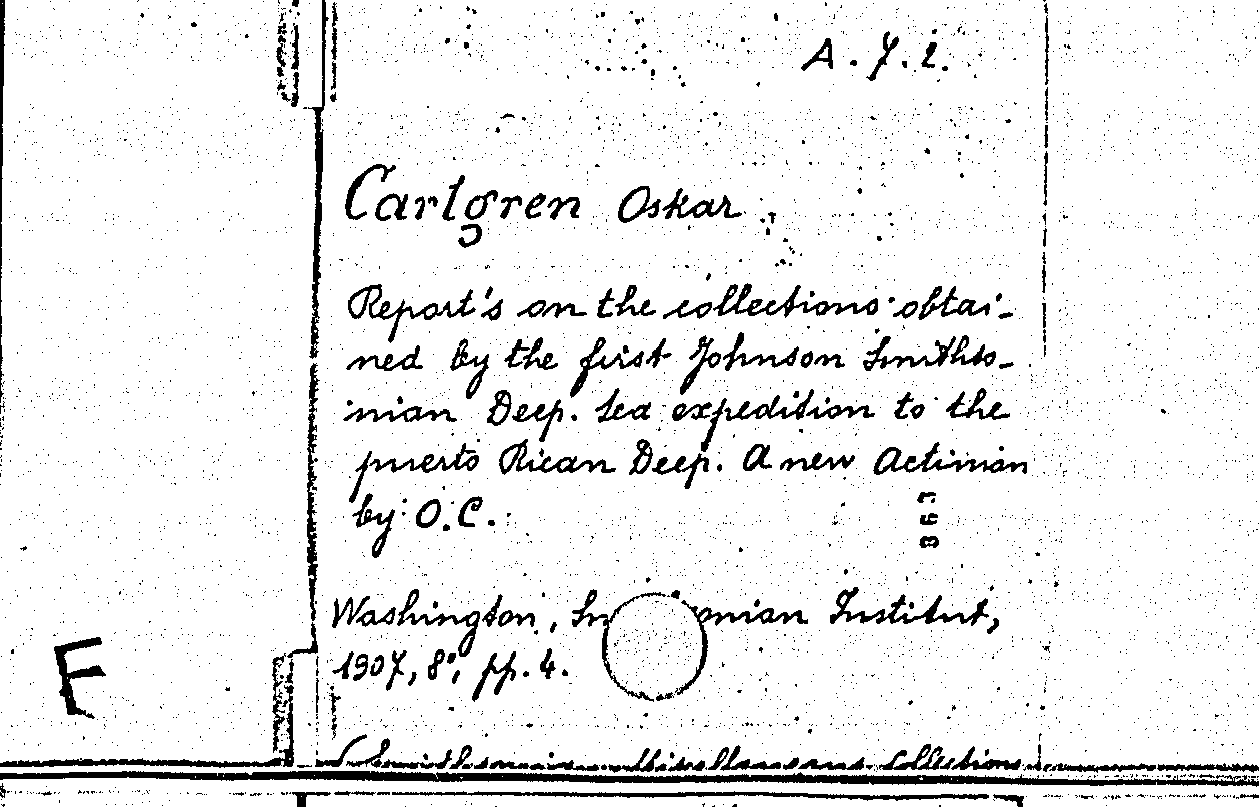 A. 7. 2.
Carlgren Oskar
Report's on the collections obtai-
ned by the first Johnson Smithso-
nian Deep. Sea expedition to the
puerto Rican Deep. A new Actinian
by O.C.
863
Washington, Sm onian Institut,
1907, 8°, pp. 4.
F
(Smithsonian Miscellaneous Collections